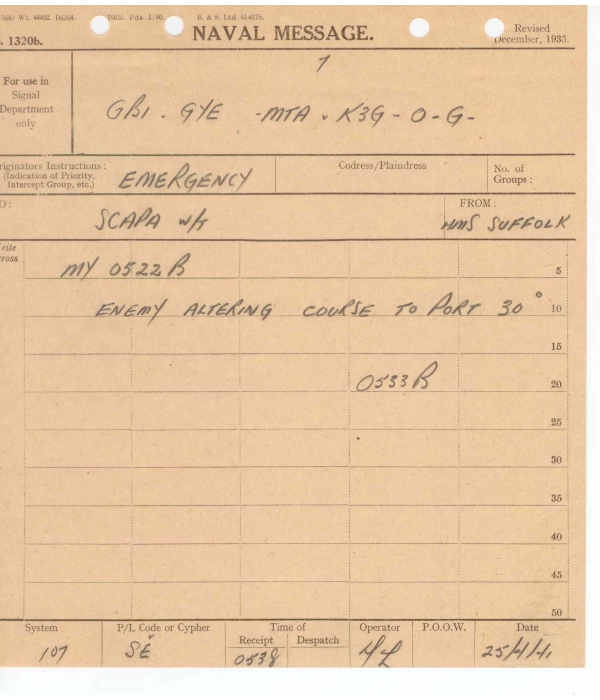 5580 Wt. 44492. D6364. 3/40. B. & S. Ltd. 51-6175.
. 1320b. NAVAL MESSAGE. Revised
December, 1935.
For use in
Signal
Department
only
7
GBI . GYE - MTA v K3G - O - G -
riginators Instructions:
(Indication of Priority,
Intercept Group, etc.)
EMERGENCY
Codress/Plaindress
No. of
Groups:
O:
SCAPA W/T
FROM:
HMS SUFFOLK
rite
cross
MY 0522B
5
ENEMY ALTERING COURSE TO PORT 30° 10
15
0533B 20
25
30
35
40
45
50
System P/L Code or Cypher Time of Operator P.O.O.W. Date
Receipt Despatch
107 SE 0538